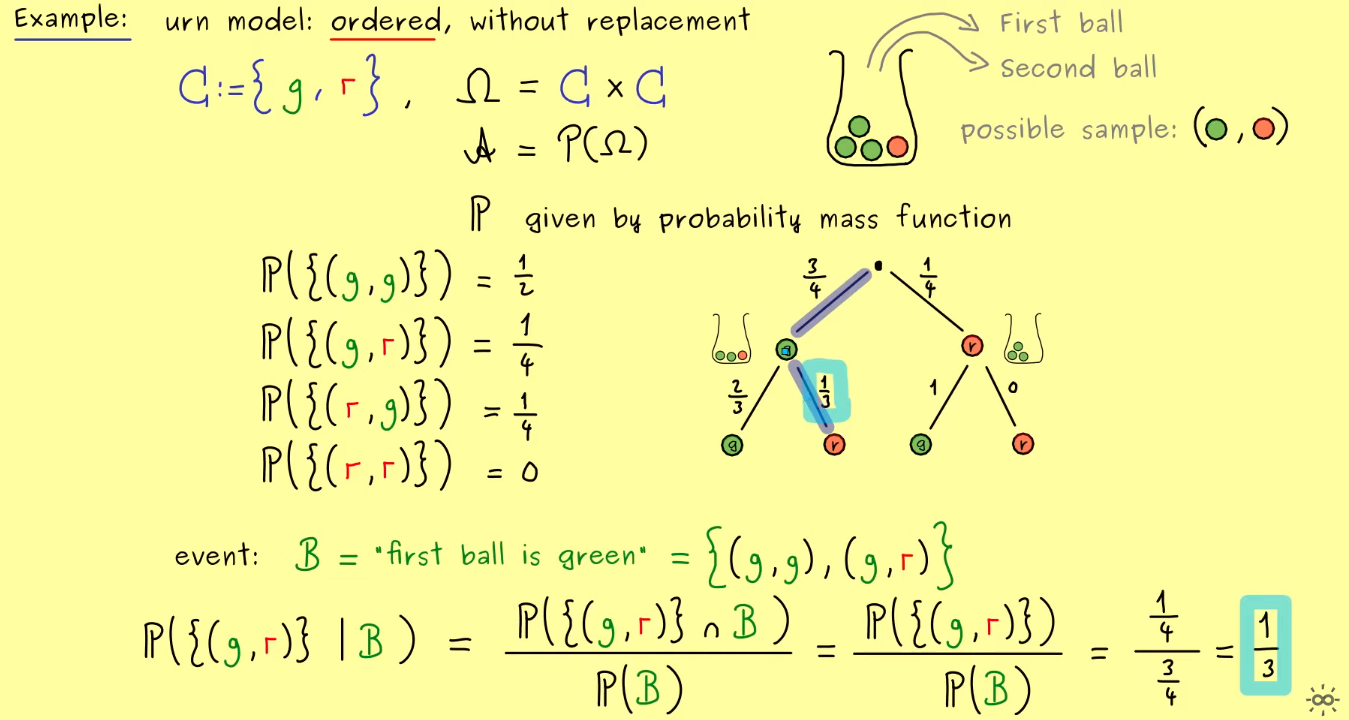 Example: urn model: ordered, without replacement
First ball
Second ball
C := {g, r}, Ω = C × C
A = P(Ω)
possible sample: ( , )
ℙ given by probability mass function
ℙ({(g,g)}) = 1/2
ℙ({(g,r)}) = 1/4
ℙ({(r,g)}) = 1/4
ℙ({(r,r)}) = 0
3/4 1/4
g r
2/3 1/3 1 0
g r g r
event: B = "first ball is green" = {(g,g), (g,r)}
ℙ({(g,r)} | B) = ℙ({(g,r)} ∩ B) / ℙ(B) = ℙ({(g,r)}) / ℙ(B) = (1/4) / (3/4) = 1/3